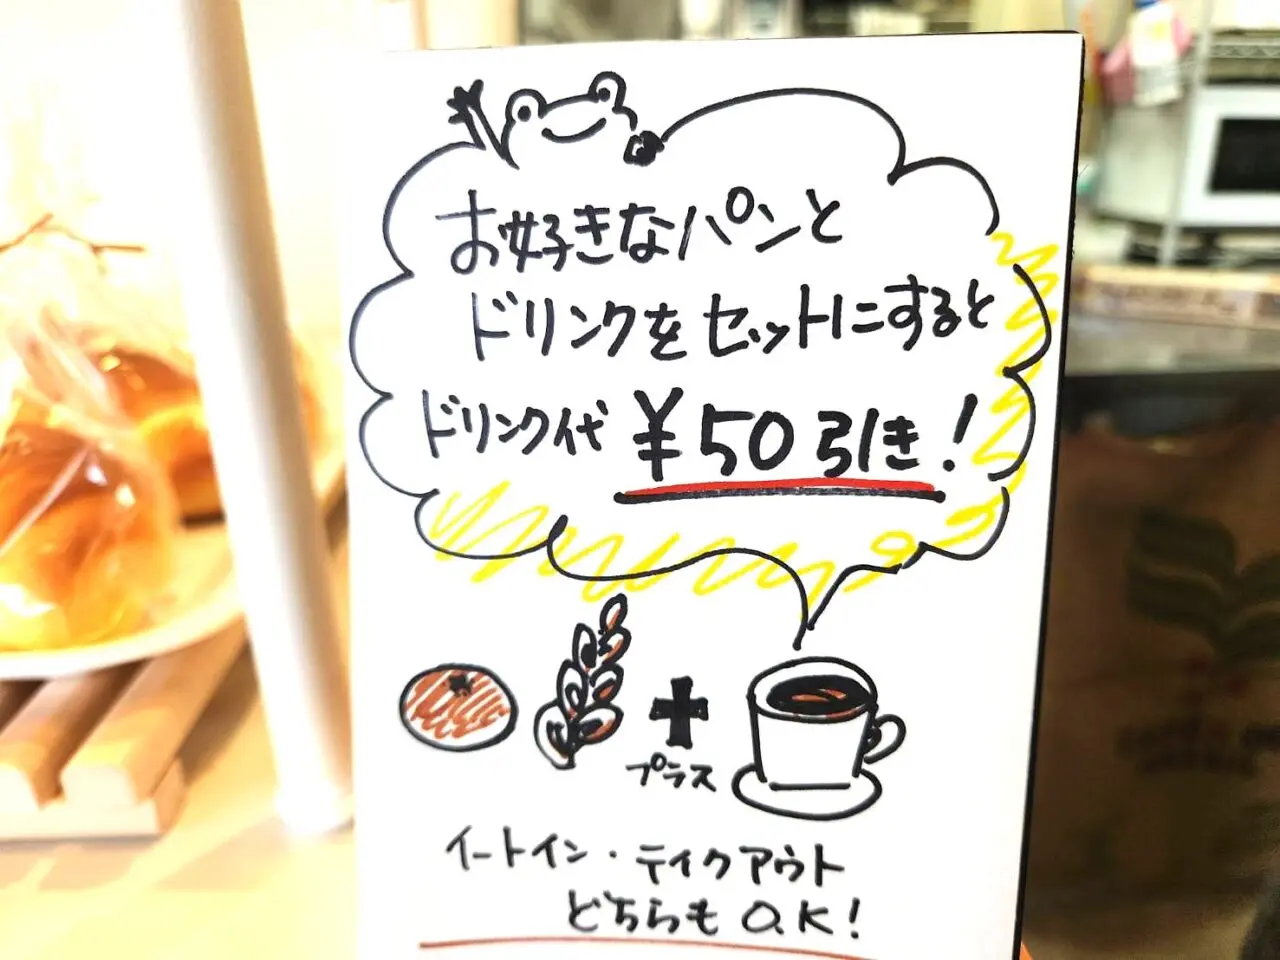 お好きなパンと
ドリンクをセットにすると
ドリンク代 ¥50引き!
プラス
イートイン・テイクアウト
どちらもO.K!